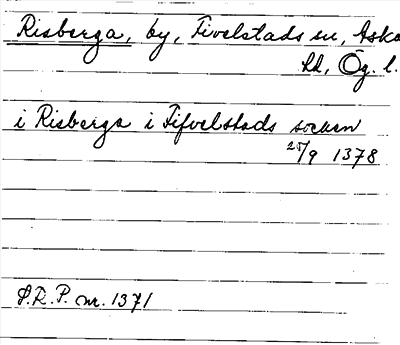 Risberga, by, Tivelstads sn, Aska
hd, Ög. l.
i Risberga i Tifvelstads socken
25/9 1378
S.R.P. nr. 1371